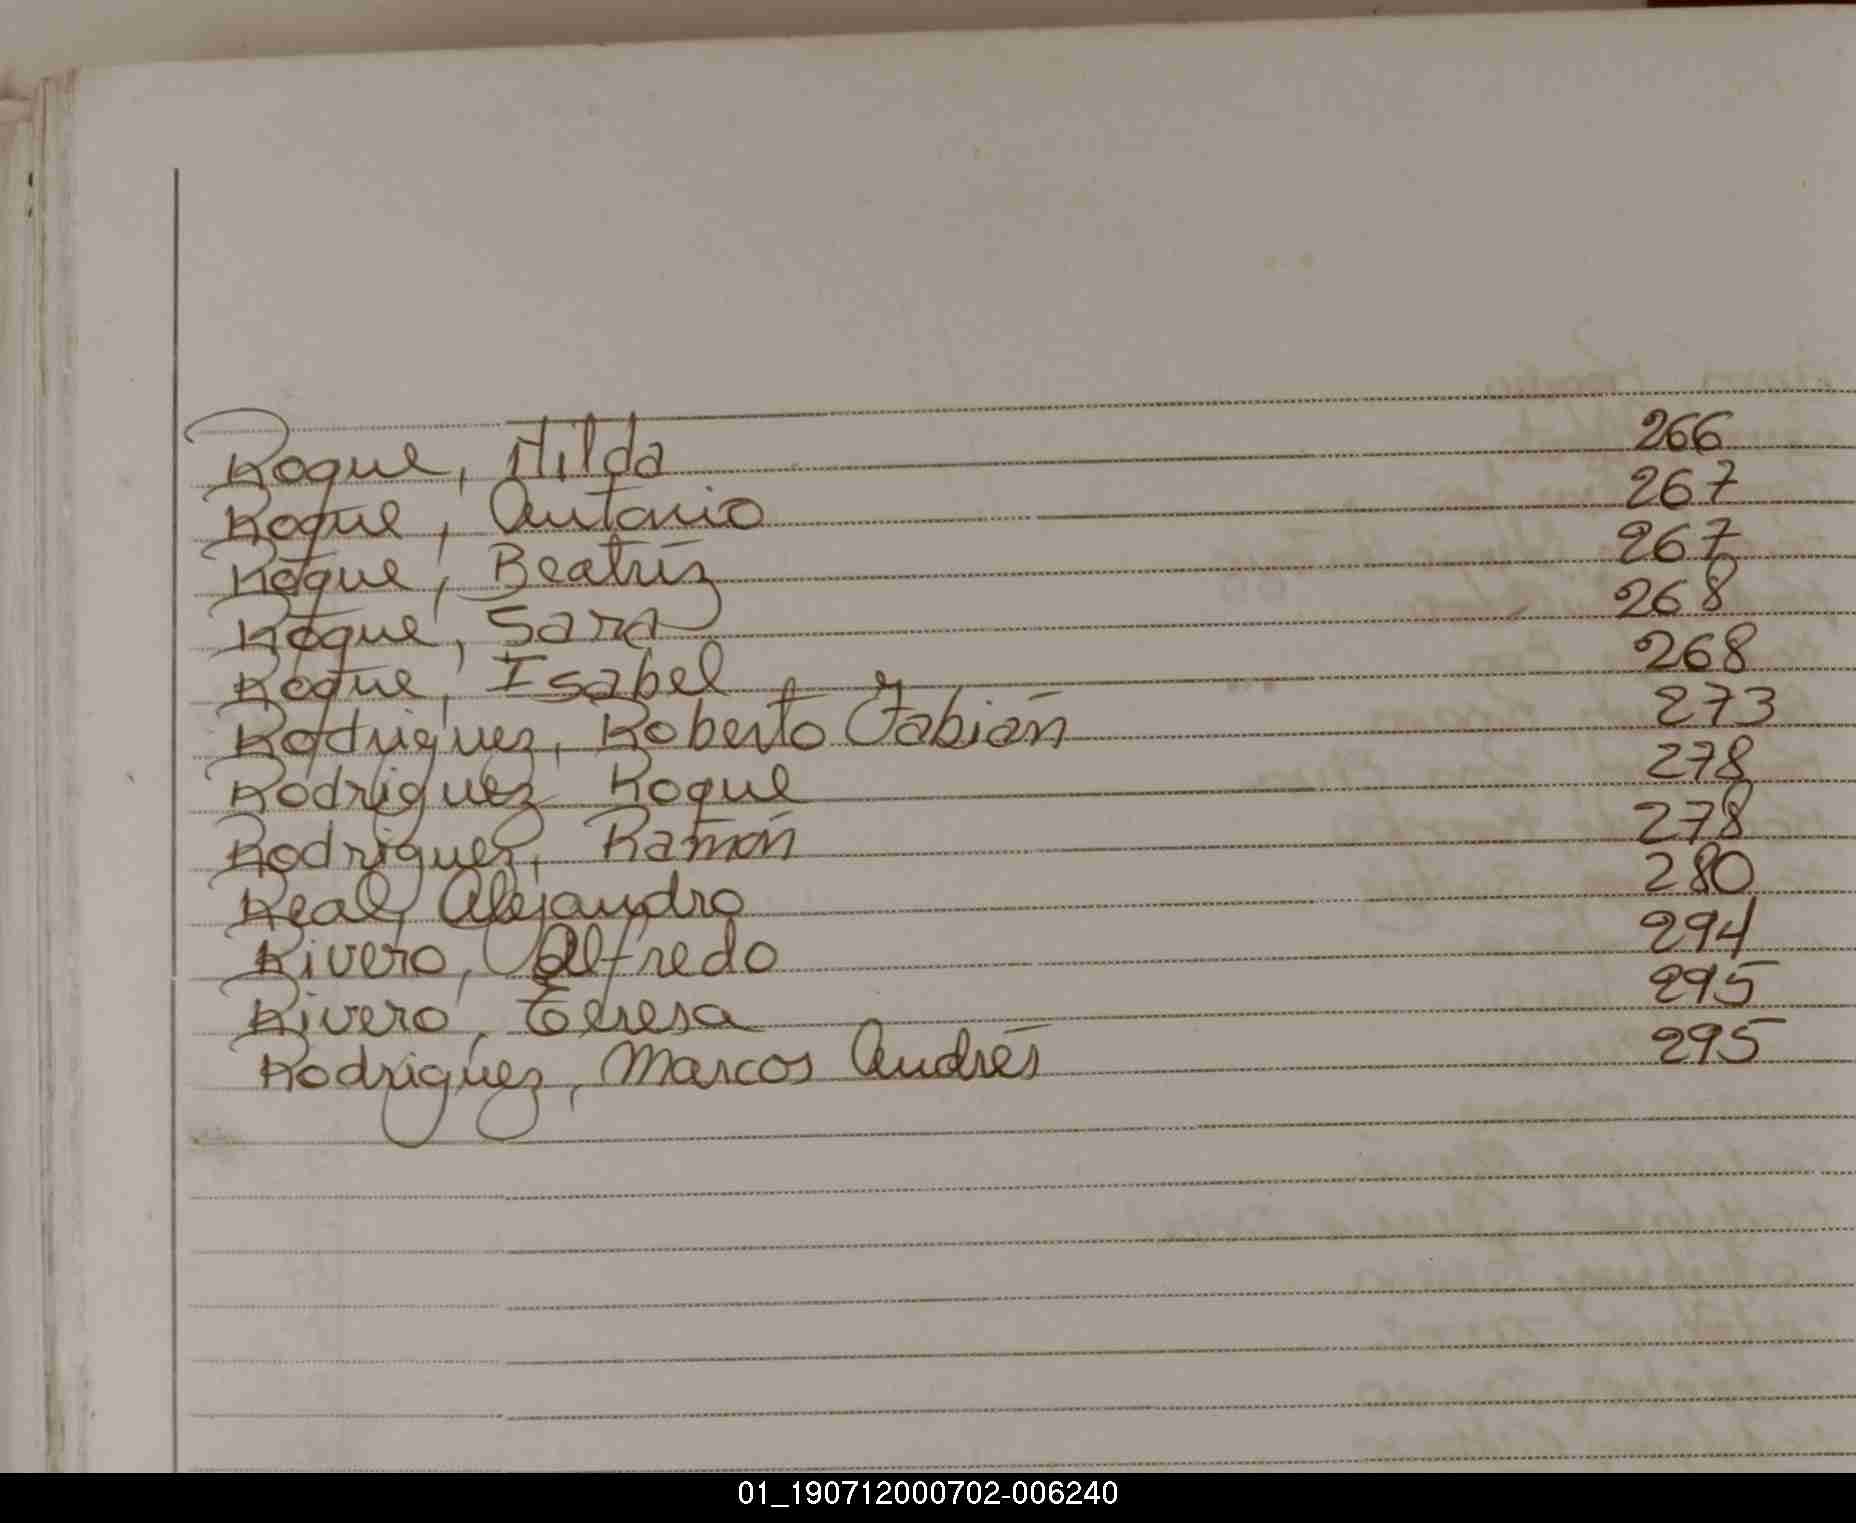 Roque, Hilda 266
Roque, Antonio 267
Roque, Beatríz 267
Roque, Sara 268
Roque, Isabel 268
Rodriguez, Roberto Fabián 273
Rodriguez Roque 278
Rodriguez, Ramón 278
Real, Alejandro 280
Rivero, Alfredo 294
Rivero, Teresa 295
Rodriguez, Marcos Andrés 295
01_190712000702-006240